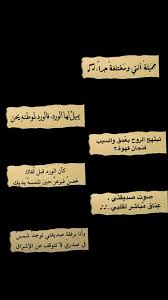 جميلة أنتي ومختلفة جداً..♫
يميلُ لها الورد، فالورد لموطنهِ يحن
تبتهج الروح بعمق والسبب
فنجان قهوة؟
كأن الورد قبل لقاك
غصن غير مزهر حين تلمسه يديك
صوت صديقتي،
عناق مباشر لقلبي..♫
وأنا برفقة صديقتي توجد شمس
في صدري لا تتوقف عن الإشراق